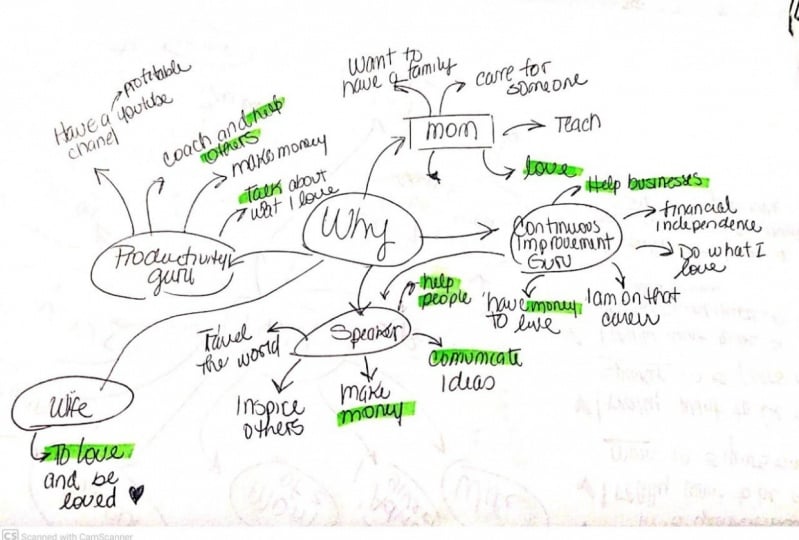 Want to
have a family
care for
someone
mom
Teach
love
profitable
Have a youtube
chanel
coach and help
others
make money
Talk about
wat I love
Productivity
guru
Why
Continuous
Improvement
Guru
Help businesses
financial
independence
Do what I
love
I am on that
career
have money
To live
Speaker
help
people
Comunicate
Ideas
make
money
Inspire
others
Travel
the world
Wife
To love
and be
loved
CS Scanned with CamScanner